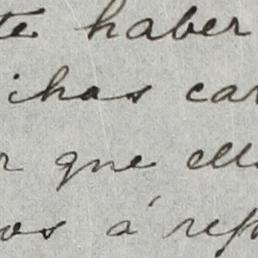 te haber
ihas car
r que ella
os á ref